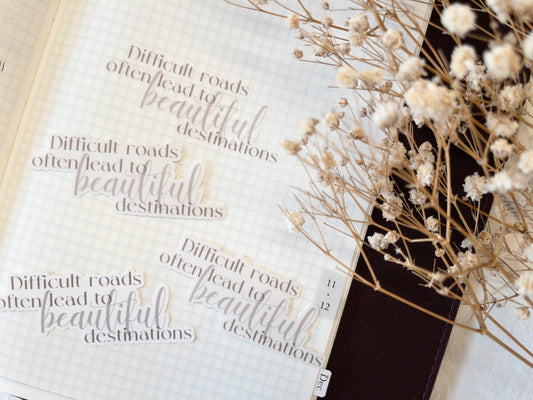 Difficult roads
often lead to
beautiful
destinations
Difficult roads
often lead to
beautiful
destinations
Difficult roads
often lead to
beautiful
destinations
Difficult roads
often lead to
beautiful
destinations
11
·
12
Dec